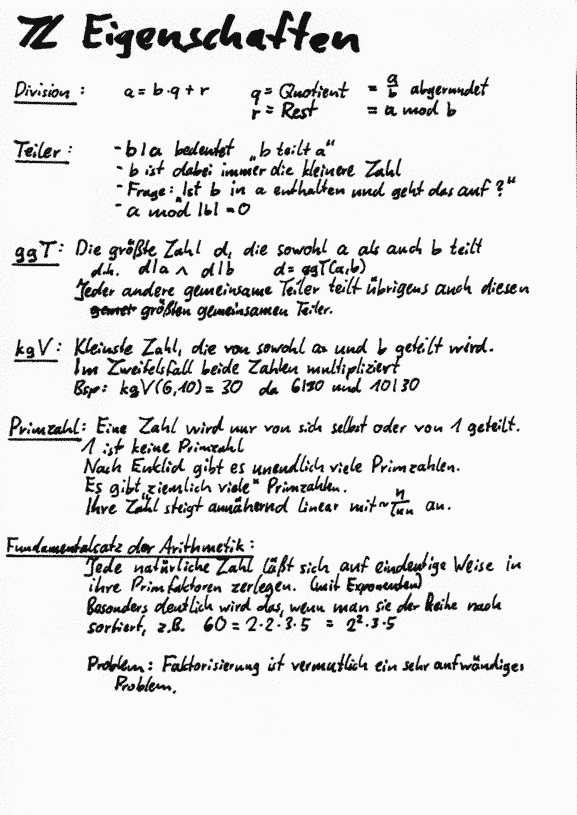 ℤ Eigenschaften
Division: a = b·q + r q = Quotient = a/b abgerundet
r = Rest = a mod b
Teiler: - b|a bedeutet „b teilt a"
- b ist dabei immer die kleinere Zahl
- Frage: „Ist b in a enthalten und geht das auf?"
- a mod |b| = 0
ggT: Die größte Zahl d, die sowohl a als auch b teilt
d.h. d|a ∧ d|b d = ggT(a,b)
Jeder andere gemeinsame Teiler teilt übrigens auch diesen
größten gemeinsamen Teiler.
kgV: Kleinste Zahl, die von sowohl a und b geteilt wird.
Im Zweifelsfall beide Zahlen multipliziert
Bsp: kgV(6,10) = 30 da 6|30 und 10|30
Primzahl: Eine Zahl wird nur von sich selbst oder von 1 geteilt.
1 ist keine Primzahl
Nach Euklid gibt es unendlich viele Primzahlen.
Es gibt „ziemlich viele" Primzahlen.
Ihre Zahl steigt annähernd linear mit ~ n/ln n an.
Fundamentalsatz der Arithmetik:
Jede natürliche Zahl läßt sich auf eindeutige Weise in
ihre Primfaktoren zerlegen. (mit Exponenten)
Besonders deutlich wird das, wenn man sie der Reihe nach
sortiert, z.B. 60 = 2·2·3·5 = 2²·3·5
Problem: Faktorisierung ist vermutlich ein sehr aufwändiges
Problem.